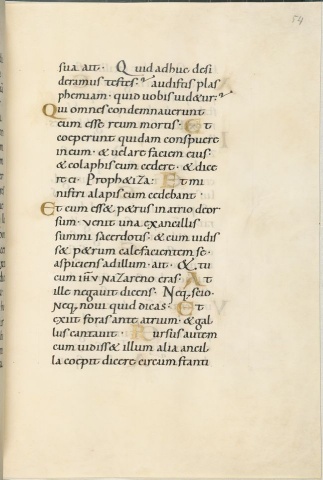 54
sua ait · Quid adhuc desi
deramus testes? audistis plas
phemiam · quid vobis videtur?
Qui omnes condemnaverunt
eum esse reum mortis · Et
coeperunt quidam conspuere
in eum · & velare faciem eius ·
& colaphis eum cedere · & dice
re ei · Proph&iza · Et mi
nistri alapis eum cedebant ·
Et cum ess& p&rus in atrio deor
sum · venit una ex ancillis
summi sacerdotis · & cum vidis
s& p&rum calefacientem se ·
aspiciens ad illum · ait · & tu
cum iħu Nazareno eras · At
ille negavit dicens · Neq, scio ·
Neq, novi quid dicas · Et
exiit foras ante atrium · & gal
lus cantavit · Rursus autem
cum vidiss& illum alia ancil
la coepit dicere circumstanti